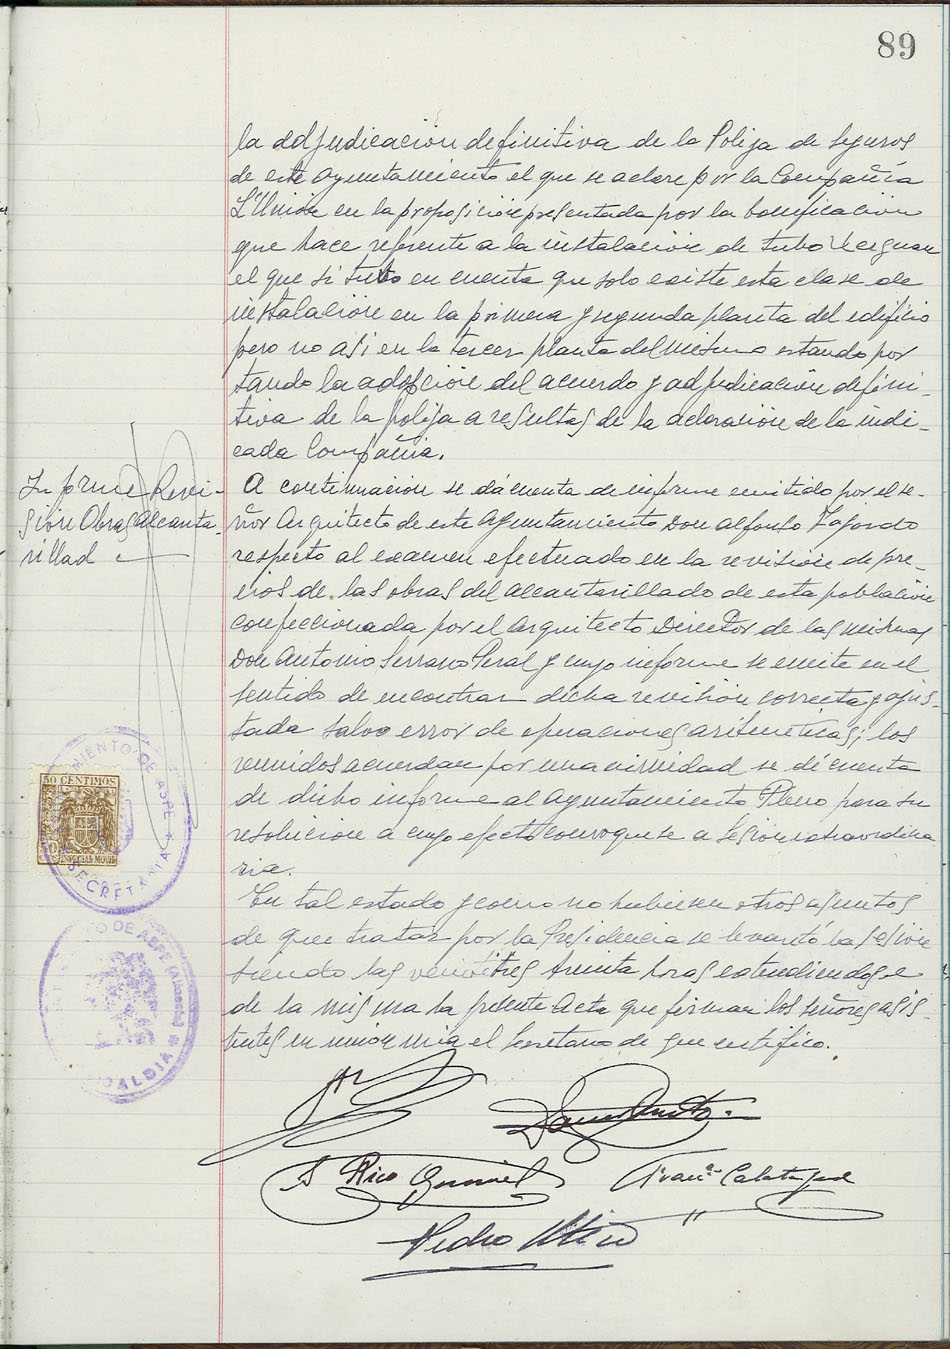 89
la addjudicación definitiva de la Poliza de seguros
de este Ayuntamiento el que se aclare por la Compañía
L'Unión en la proposición presentada por la bonificación
que hace referente a la instalación de tubo Bergman
el que si tubo en cuenta que solo existe esta clase de
instalación en la primera y segunda planta del edificio
pero no asi en la tercer planta del mismo estando por
tando la adopción del acuerdo y adjudicación defini-
tiva de la poliza a resultas de la aclaración de la indi-
cada Compañia.
Informe Revi-
sión Obras alcanta-
rillad
A continuación se dá cuenta de informe emitido por el se-
ñor Arquitecto de este Ayuntamiento Don Alfonso Fajardo
respecto al examen efectuado en la revisión de pre-
cios de las obras del alcantarillado de esta población
confeccionada por el Arquitecto Director de las mismas
Don Antonio Serrano Peral y cuyo informe se emite en el
sentido de encontrar dicha revisión correcta y ajus-
tada salvo error de operaciones aritmeticas; los
reunidos acuerdan por unanimidad se dé cuenta
de dicho informe al Ayuntamiento Pleno para su
resolución a cuyo efecto convoquese a sesion extraordina-
ria.
En tal estado y como no hubieren otros asuntos
de que tratar por la Presidencia se levantó la sesión
siendo las veintitres treinta horas extendiendose
de la misma la presente Acta que firman los señores asis-
tentes en unión mia el Secretario de que certifico.
50 CENTIMOS
ESPECIAL MOVIL
AMIENTO DE ASPE
SECRETARIA
TO DE ASPE (Alicante)
ALCALDIA
A Rico
Franco Calatayud
Pedro